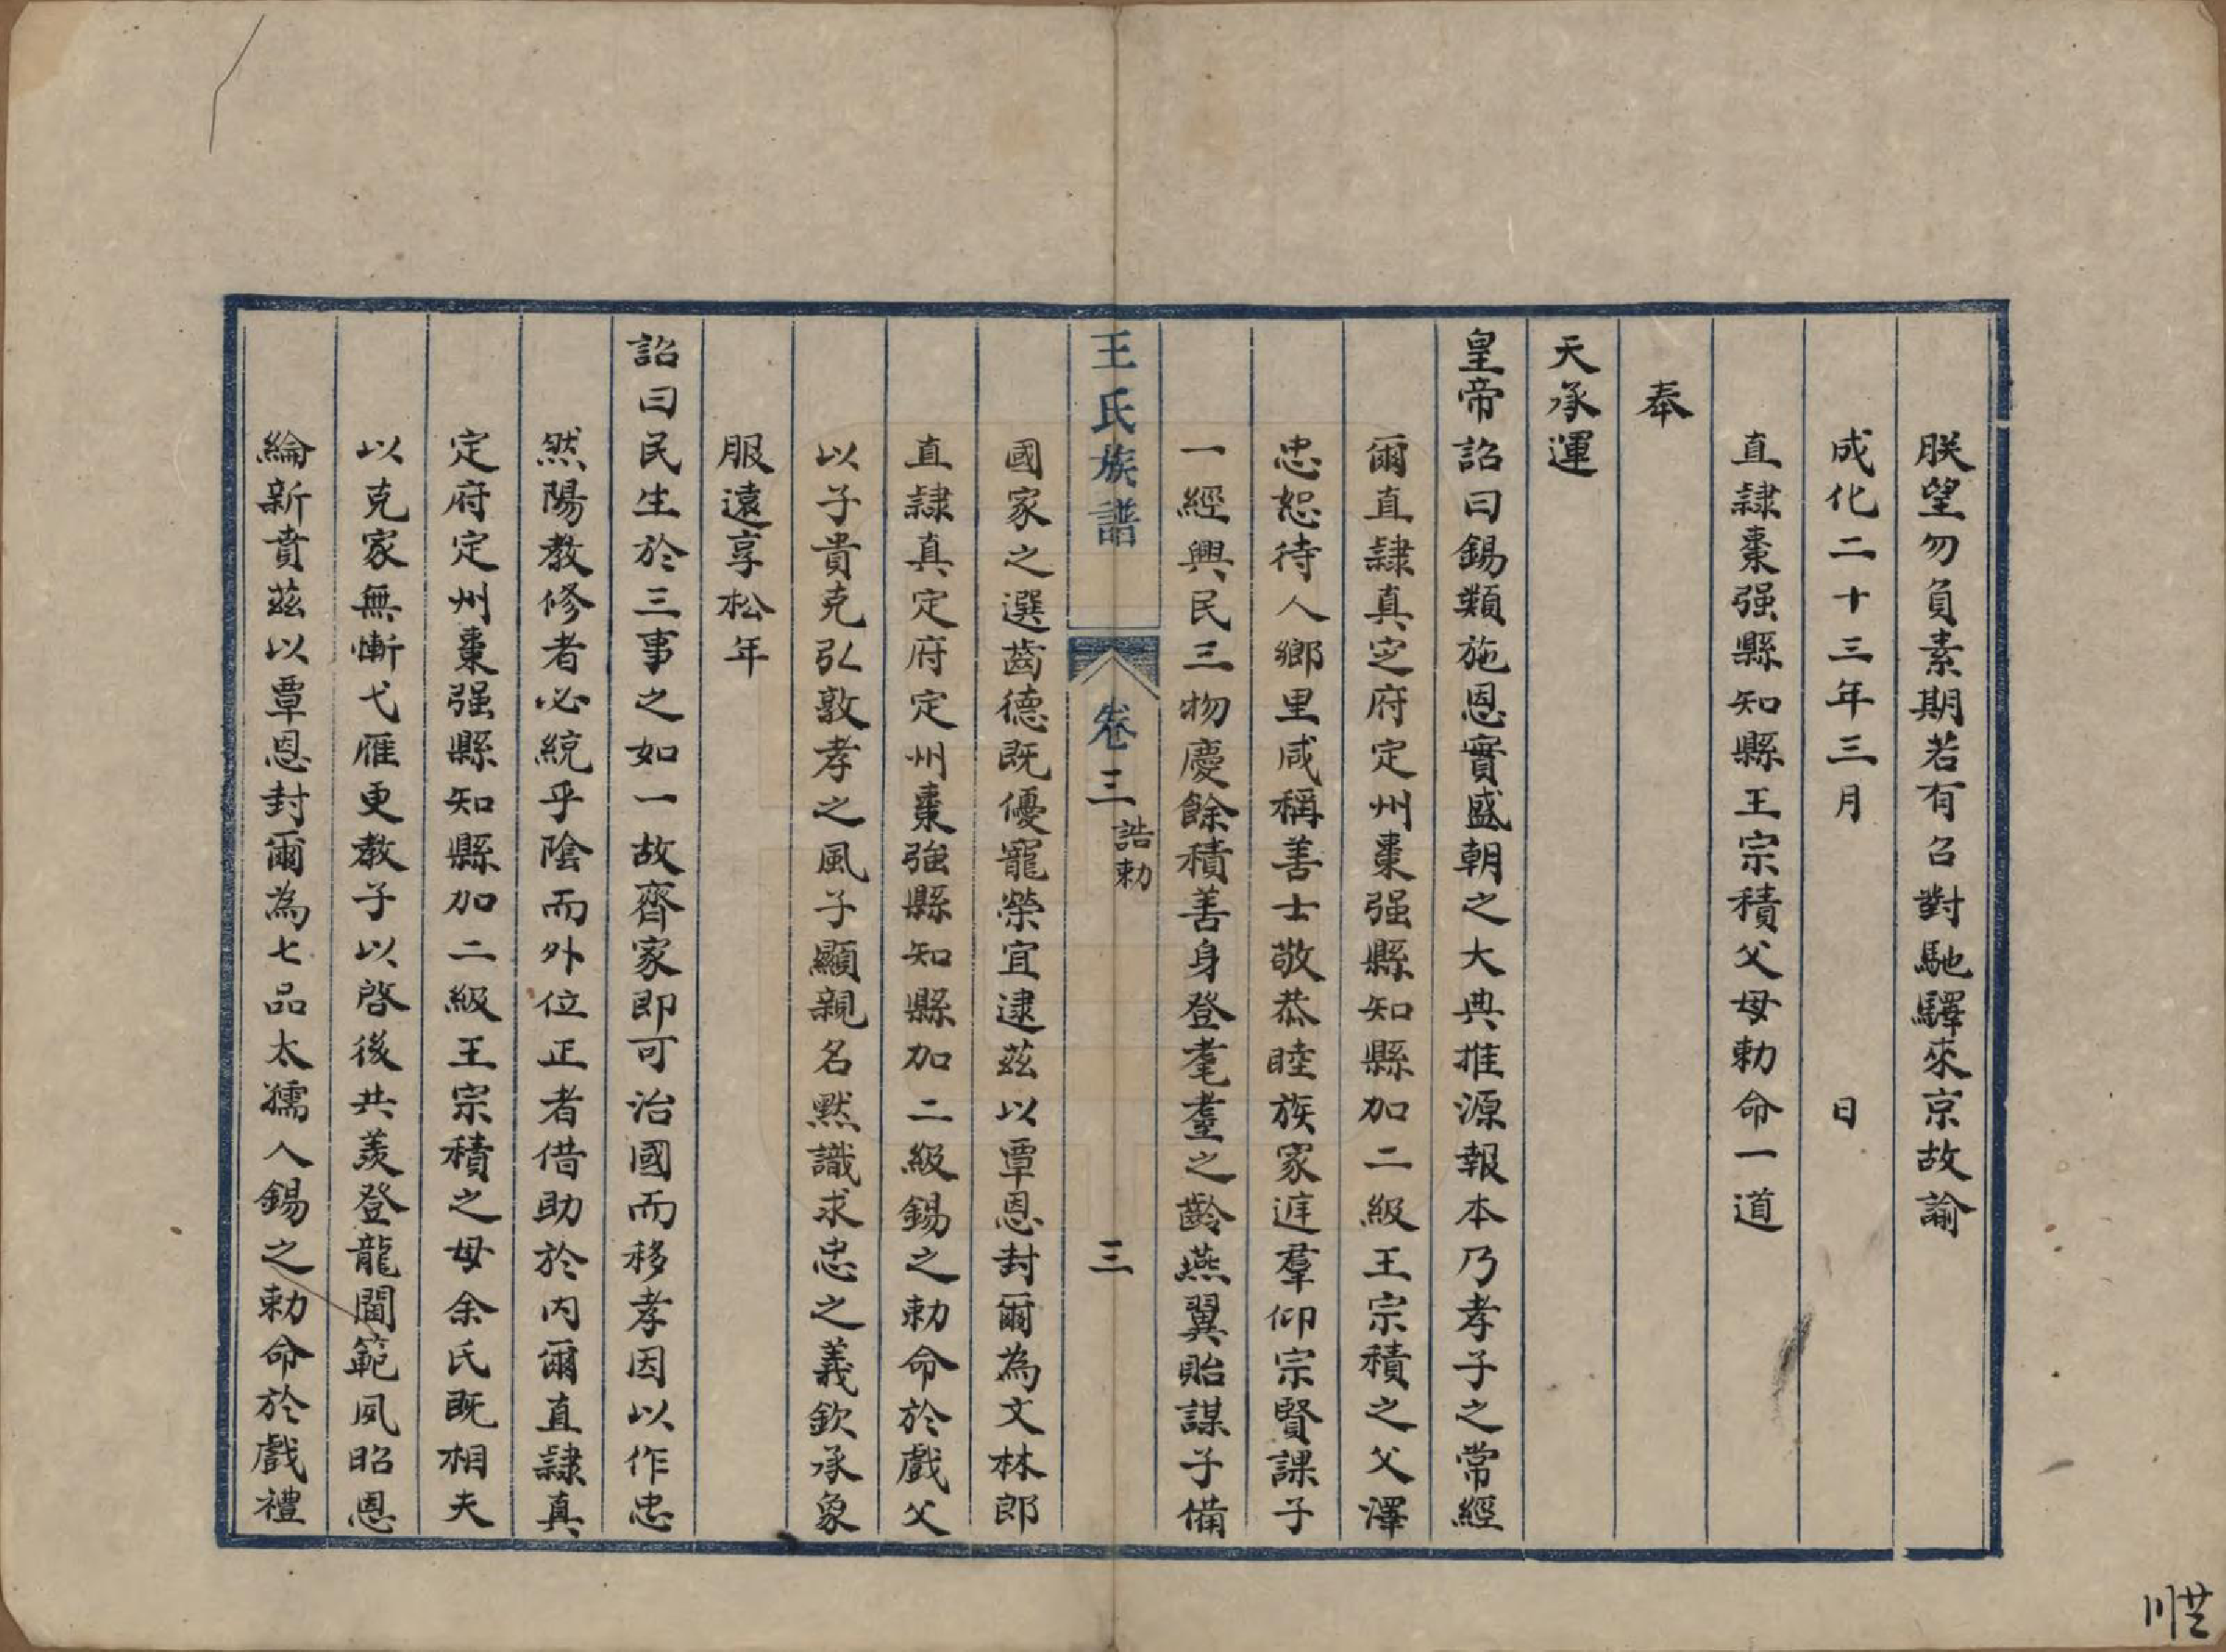 朕望勿負素期若有召對馳驛來京故諭
成化二十三年三月 日
直隷棗强縣知縣王宗積父母勅命一道
奉
天承運
皇帝詔曰錫類施恩實盛朝之大典推源報本乃孝子之常經
爾直隷真定府定州棗强縣知縣加二級王宗積之父澤
忠恕待人鄉里咸稱善士敬恭睦族家庭羣仰宗賢課子
一經興民三物慶餘積善身登耄耋之齡燕翼貽謀子備
王氏族譜 卷三 誥勅 三
國家之選齒德既優寵榮宜逮茲以覃恩封爾為文林郎
直隷真定府定州棗強縣知縣加二級錫之勅命於戲父
以子貴克弘敦孝之風子顯親名默識求忠之義欽承象
服遠享松年
詔曰民生於三事之如一故齊家即可治國而移孝因以作忠
然陽教修者必統乎陰而外位正者借助於内爾直隷真
定府定州棗强縣知縣加二級王宗積之母余氏既相夫
以克家無慚弋雁更教子以啓後共羨登龍閫範夙昭恩
綸新賁茲以覃恩封爾為七品太孺人錫之勅命於戲禮